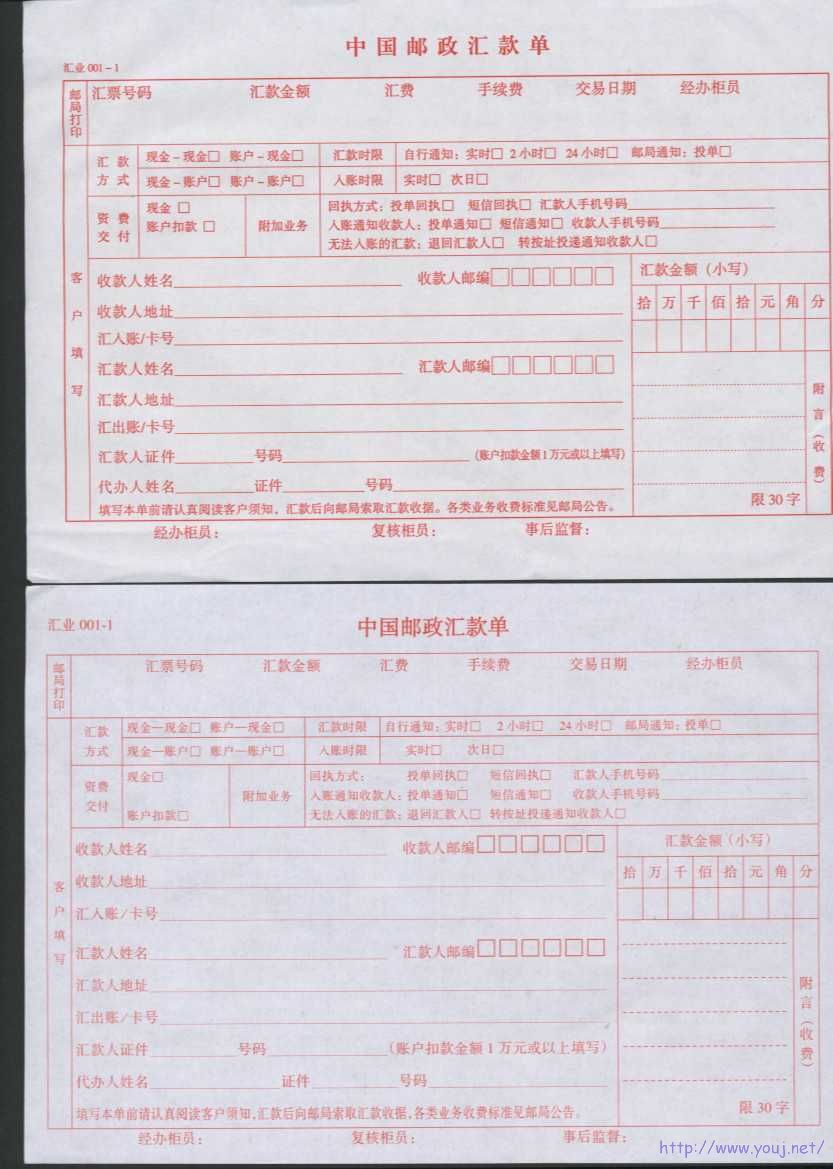 中国邮政汇款单
汇业 001-1
邮局打印 汇票号码 汇款金额 汇费 手续费 交易日期 经办柜员
客户填写
汇款方式 现金-现金□ 账户-现金□ 汇款时限 自行通知：实时□ 2小时□ 24小时□ 邮局通知：投单□
现金-账户□ 账户-账户□ 入账时限 实时□ 次日□
资费交付 现金 □ 附加业务 回执方式：投单回执□ 短信回执□ 汇款人手机号码
账户扣款 □ 入账通知收款人：投单通知□ 短信通知□ 收款人手机号码
无法入账的汇款：退回汇款人□ 转按址投递通知收款人□
收款人姓名 收款人邮编□□□□□□ 汇款金额（小写）
收款人地址 拾 万 千 佰 拾 元 角 分
汇入账/卡号
汇款人姓名 汇款人邮编□□□□□□
汇款人地址 附言（收费）
汇出账/卡号
汇款人证件 号码 （账户扣款金额1万元或以上填写）
代办人姓名 证件 号码 限30字
填写本单前请认真阅读客户须知，汇款后向邮局索取汇款收据。各类业务收费标准见邮局公告。
经办柜员： 复核柜员： 事后监督：
汇业 001-1 中国邮政汇款单
邮局打印 汇票号码 汇款金额 汇费 手续费 交易日期 经办柜员
客户填写
汇款方式 现金—现金□ 账户—现金□ 汇款时限 自行通知：实时□ 2小时□ 24小时□ 邮局通知：投单□
现金—账户□ 账户—账户□ 入账时限 实时□ 次日□
资费交付 现金□ 附加业务 回执方式： 投单回执□ 短信回执□ 汇款人手机号码
入账通知收款人：投单通知□ 短信通知□ 收款人手机号码
账户扣款□ 无法入账的汇款：退回汇款人□ 转按址投递通知收款人□
收款人姓名 收款人邮编□□□□□□ 汇款金额（小写）
收款人地址 拾 万 千 佰 拾 元 角 分
汇入账/卡号
汇款人姓名 汇款人邮编□□□□□□
汇款人地址 附言（收费）
汇出账/卡号
汇款人证件 号码 （账户扣款金额1万元或以上填写）
代办人姓名 证件 号码 限30字
填写本单前请认真阅读客户须知,汇款后向邮局索取汇款收据,各类业务收费标准见邮局公告。
经办柜员： 复核柜员： 事后监督：
http://www.youj.net/